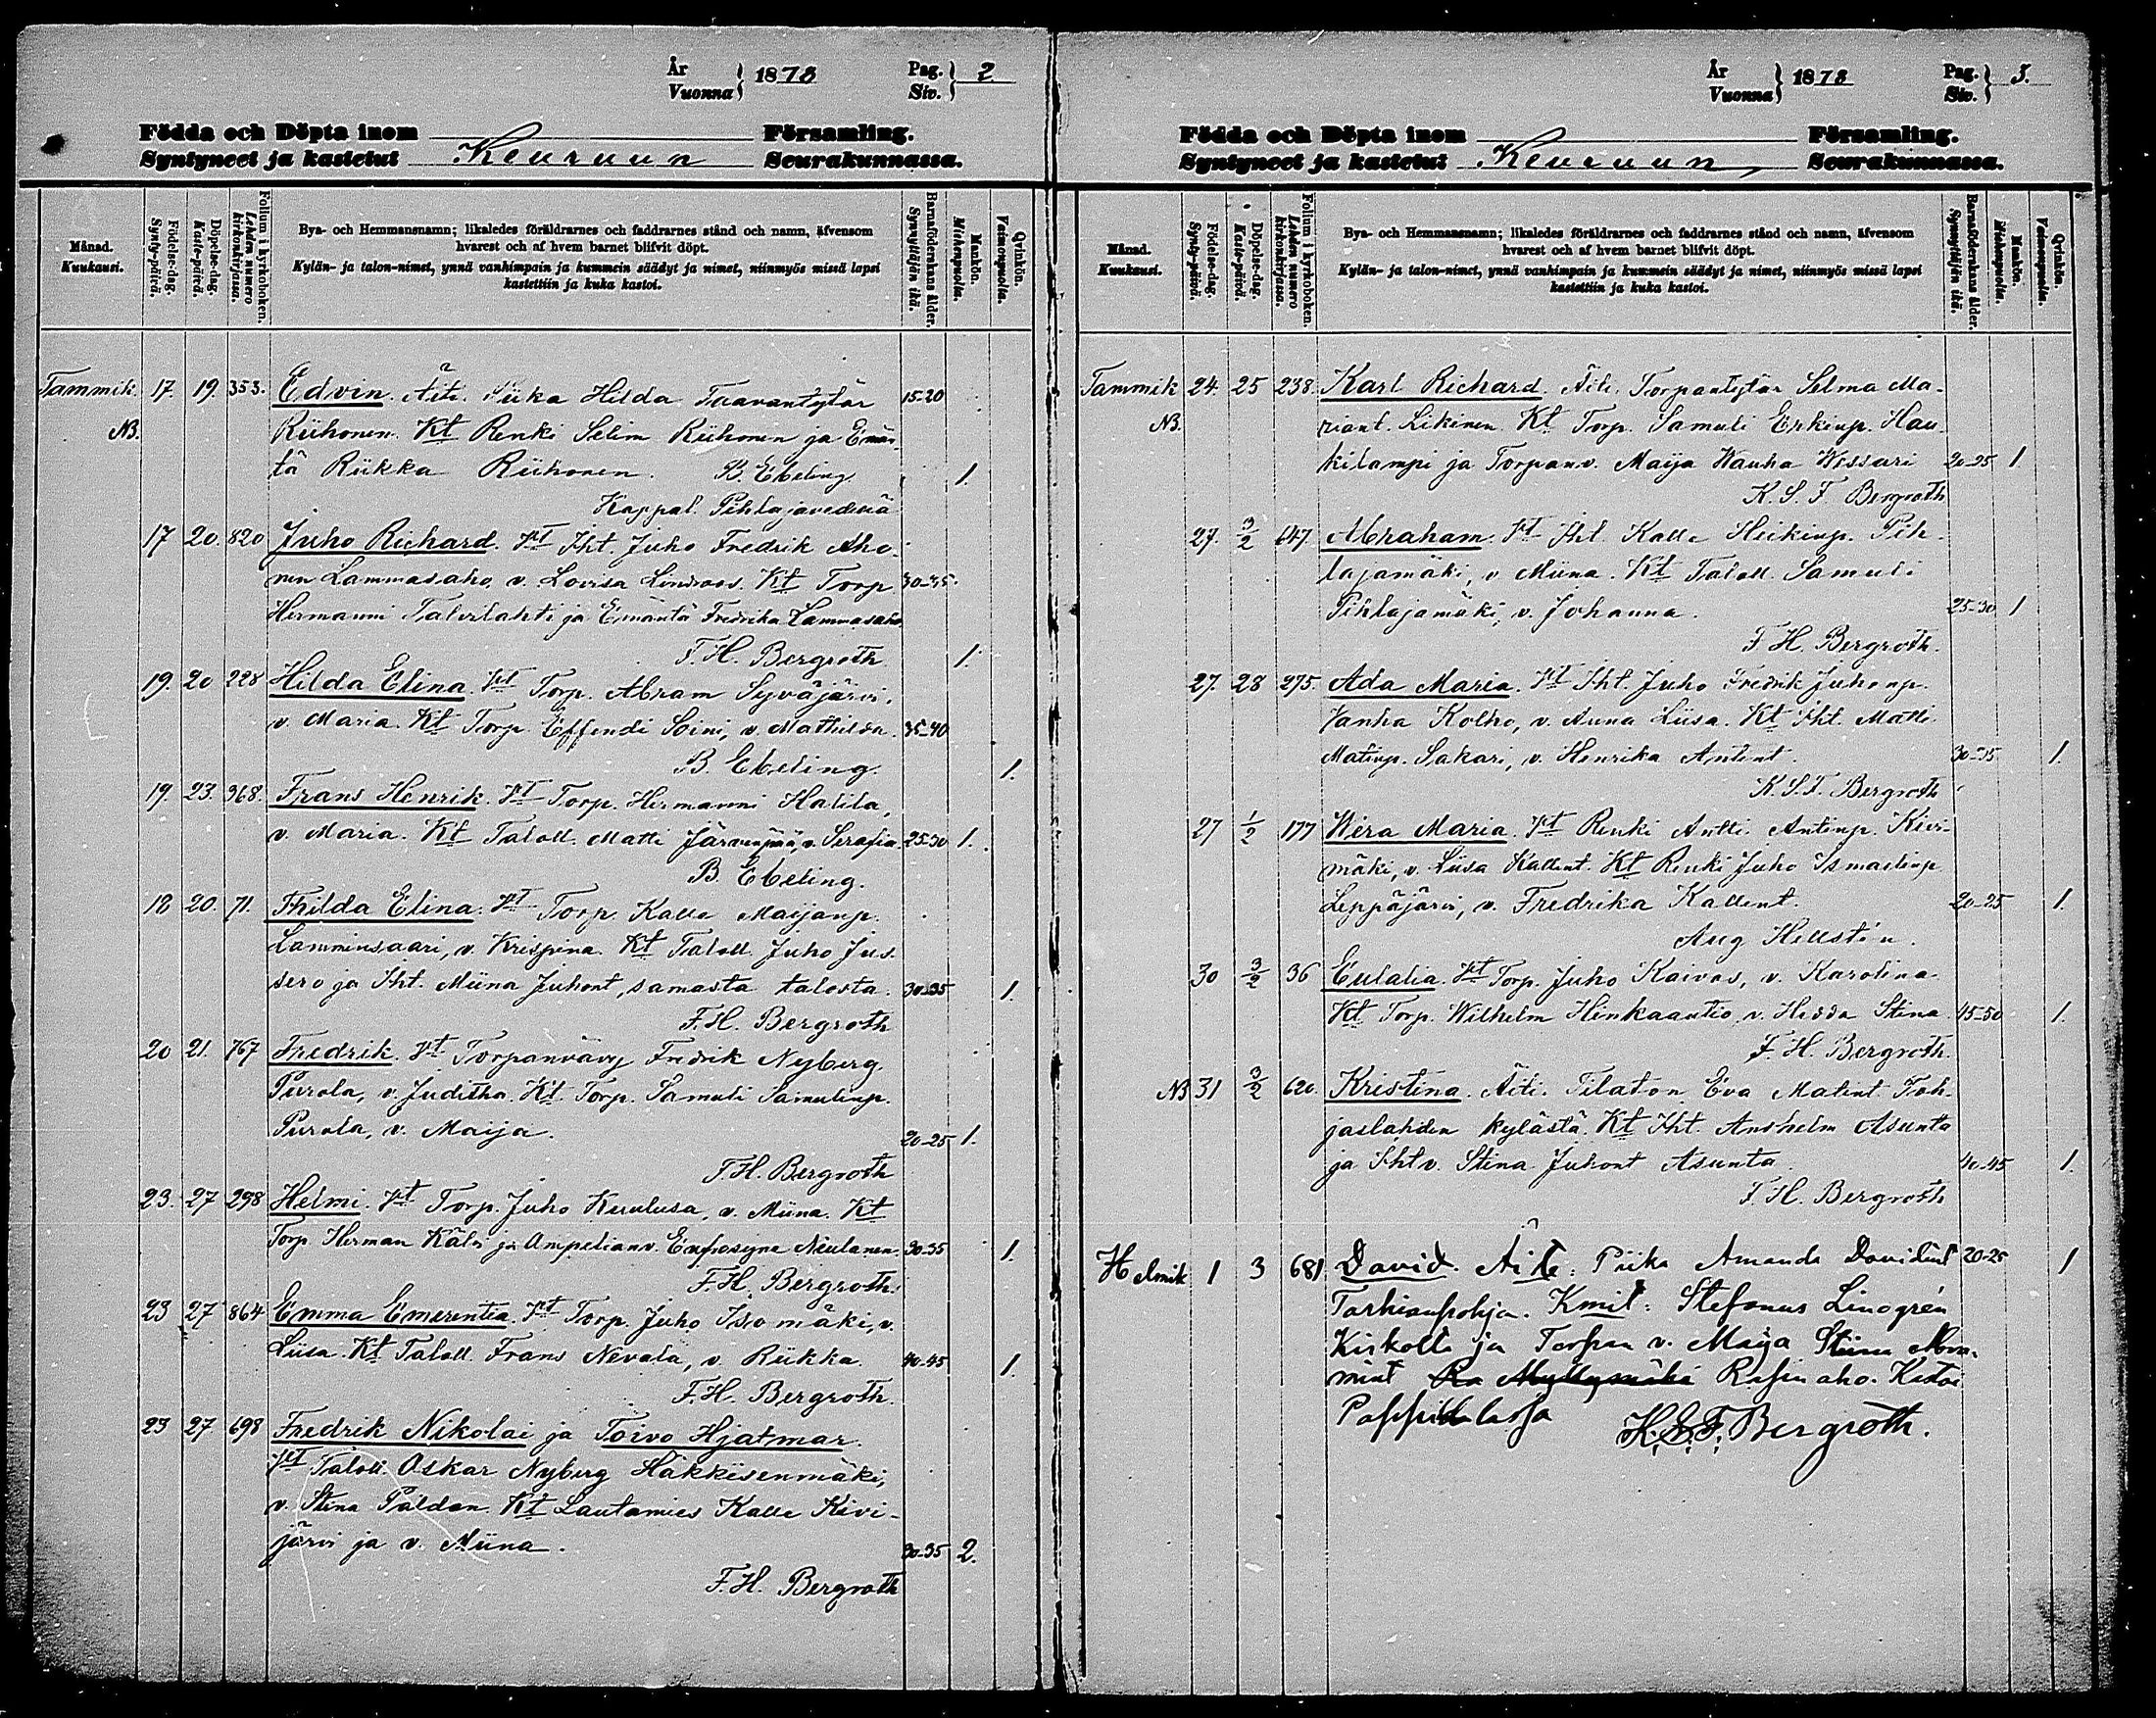 År
Vuonna } 1878
Pag.
Siv. } 2.
Födda och Döpta inom Församling.
Syntyneet ja kastetut Keuruun Seurakunnassa.
Månad.
Kuukausi.
Födelse-dag.
Synty-päivä.
Döpelse-dag.
Kaste-päivä.
Folium i kyrkoboken.
Lehden numero
kirkonkirjassa.
Bya- och Hemmansnamn; likaledes föräldrarnes och faddrarnes stånd och namn, äfvensom
hvarest och af hvem barnet blifvit döpt.
Kylän- ja talon-nimet, ynnä vanhimpain ja kummein säädyt ja nimet, niinmyös missä lapsi
kastettiin ja kuka kastoi.
Barnaföderskans ålder.
Synnyttäjän ikä.
Mankön.
Miehenpuolia.
Qvinkön.
Vaimonpuolia.
Tammik. 17. 19. 353. Edvin. Äiti. Piika Hilda Taavantytär 15-20
NB. Riihonen. Kt Renki Selim Riihonen ja Emän-
tä Riikka Riihonen. B. Ebeling. 1.
Kappal. Pihlajavedessä
17 20. 820 Juho Richard. Vt Iht. Juho Fredrik Aho-
nen Lammasaho, v. Lovisa Lindroos. Kt Torp 30-35
Hermanni Talvilahti ja Emäntä Fredrika Lammasaho
F. H. Bergroth 1.
19. 20 228 Hilda Elina. Vt Torp. Abram Syväjärvi,
v. Maria. Kt Torp. Effendi Soini, v. Mathilda. 35-40
B. Ebeling. 1.
19. 23. 368. Frans Henrik. Vt Torp. Hermanni Halila,
v. Maria. Kt Taloll. Matti Järvenpää, v. Serafia. 25-30 1.
B. Ebeling.
18 20. 71. Thilda Elina. Vt Torp. Kalle Maijanp.
Lamminsaari, v. Krispina. Kt Taloll. Juho Jus-
sero ja Iht. Miina Juhont, samasta talosta. 30-35 1.
F. H. Bergroth
20 21. 767 Fredrik. Vt Torpanvävy Fredrik Nyberg.
Purola, v. Juditha. Kt. Torp. Samuli Samulinp.
Purola, v. Maija. 20-25 1.
F. H. Bergroth
23. 27 298 Helmi. Vt Torp. Juho Keuulusa, v. Miina. Kt
Torp Herman Kälv ja Ampelianv. Eufrosyne Neulanen. 30-35 1.
F. H. Bergroth.
23 27 864 Emma Emerentia. Vt Torp. Juho Isomäki, v.
Liisa. Kt Taloll. Frans Nevala, v. Riikka. 40-45 1.
F. H. Bergroth.
23 27. 698 Fredrik Nikolai ja Toivo Hjalmar.
Vt Taloll. Oskar Nyberg Häkkisenmäki,
v. Stina Paldan. Kt Lautamies Kalle Kivi-
järvi ja v. Miina. 30-35 2.
F. H. Bergroth
År
Vuonna } 1878
Pag.
Siv. } 3.
Födda och Döpta inom Församling.
Syntyneet ja kastetut Keuruun, Seurakunnassa.
Månad.
Kuukausi.
Födelse-dag.
Synty-päivä.
Döpelse-dag.
Kaste-päivä.
Folium i kyrkoboken.
Lehden numero
kirkonkirjassa.
Bya- och Hemmansnamn; likaledes föräldrarnes och faddrarnes stånd och namn, äfvensom
hvarest och af hvem barnet blifvit döpt.
Kylän- ja talon-nimet, ynnä vanhimpain ja kummein säädyt ja nimet, niinmyös missä lapsi
kastettiin ja kuka kastoi.
Barnaföderskans ålder.
Synnyttäjän ikä.
Mankön.
Miehenpuolia.
Qvinkön.
Vaimonpuolia.
Tammik 24. 25 238. Karl Richard. Äiti. Torpantytär Selma Ma-
NB. riant. Likinen. Kt Torp. Samuli Erkinp. Hau-
kilampi ja Torpanv. Maija Wanha Wessari 20-25 1.
K. S. F. Bergroth
27. 3/2 647. Abraham. Vt Iht. Kalle Heikinp. Pih-
lajamäki, v Miina. Kt Taloll. Samuli
Pihlajamäki, v. Johanna. 25-30 1
F. H. Bergroth.
27. 28 275. Ada Maria. Vt Iht. Juho Fredrik Juhonp.
Vanha Kolho, v. Anna Liisa. Kt Iht. Matti
Matinp. Sakari, v. Henrika Antint. 30-35 1.
K. S. F. Bergroth
27 1/2 177 Wera Maria. Vt Renki Antti Antinp. Kivi-
mäki, v. Liisa Kallent. Kt Renki Juho Ismaelinp
Leppäjärvi, v. Fredrika Kallent. 20-25 1.
Aug Hellstén.
30 3/2 36 Eulalia. Vt Torp. Juho Kaivos, v. Karolina
Kt Torp. Wilhelm Hinkaantio, v. Hedda Stina 45-50 1.
F. H. Bergroth.
NB 31 3/2 620. Kristina. Äiti. Tilaton Eva Matint Poh-
jaslahden kylästä. Kt Iht. Anshelm Asunta
ja Iht v. Stina Juhont Asunta. 40-45 1.
F. H. Bergroth
Helmik 1 3 681 David. Äiti: Piika Amanda Davidint 20-25 1
Tarhianpohja. Kmit: Stefanus Lindgrén
Kirkolta ja Torpan v. Maija Stiina
Myllymäki aho. Kastoi
Pappilassa K. S. F. Bergroth.